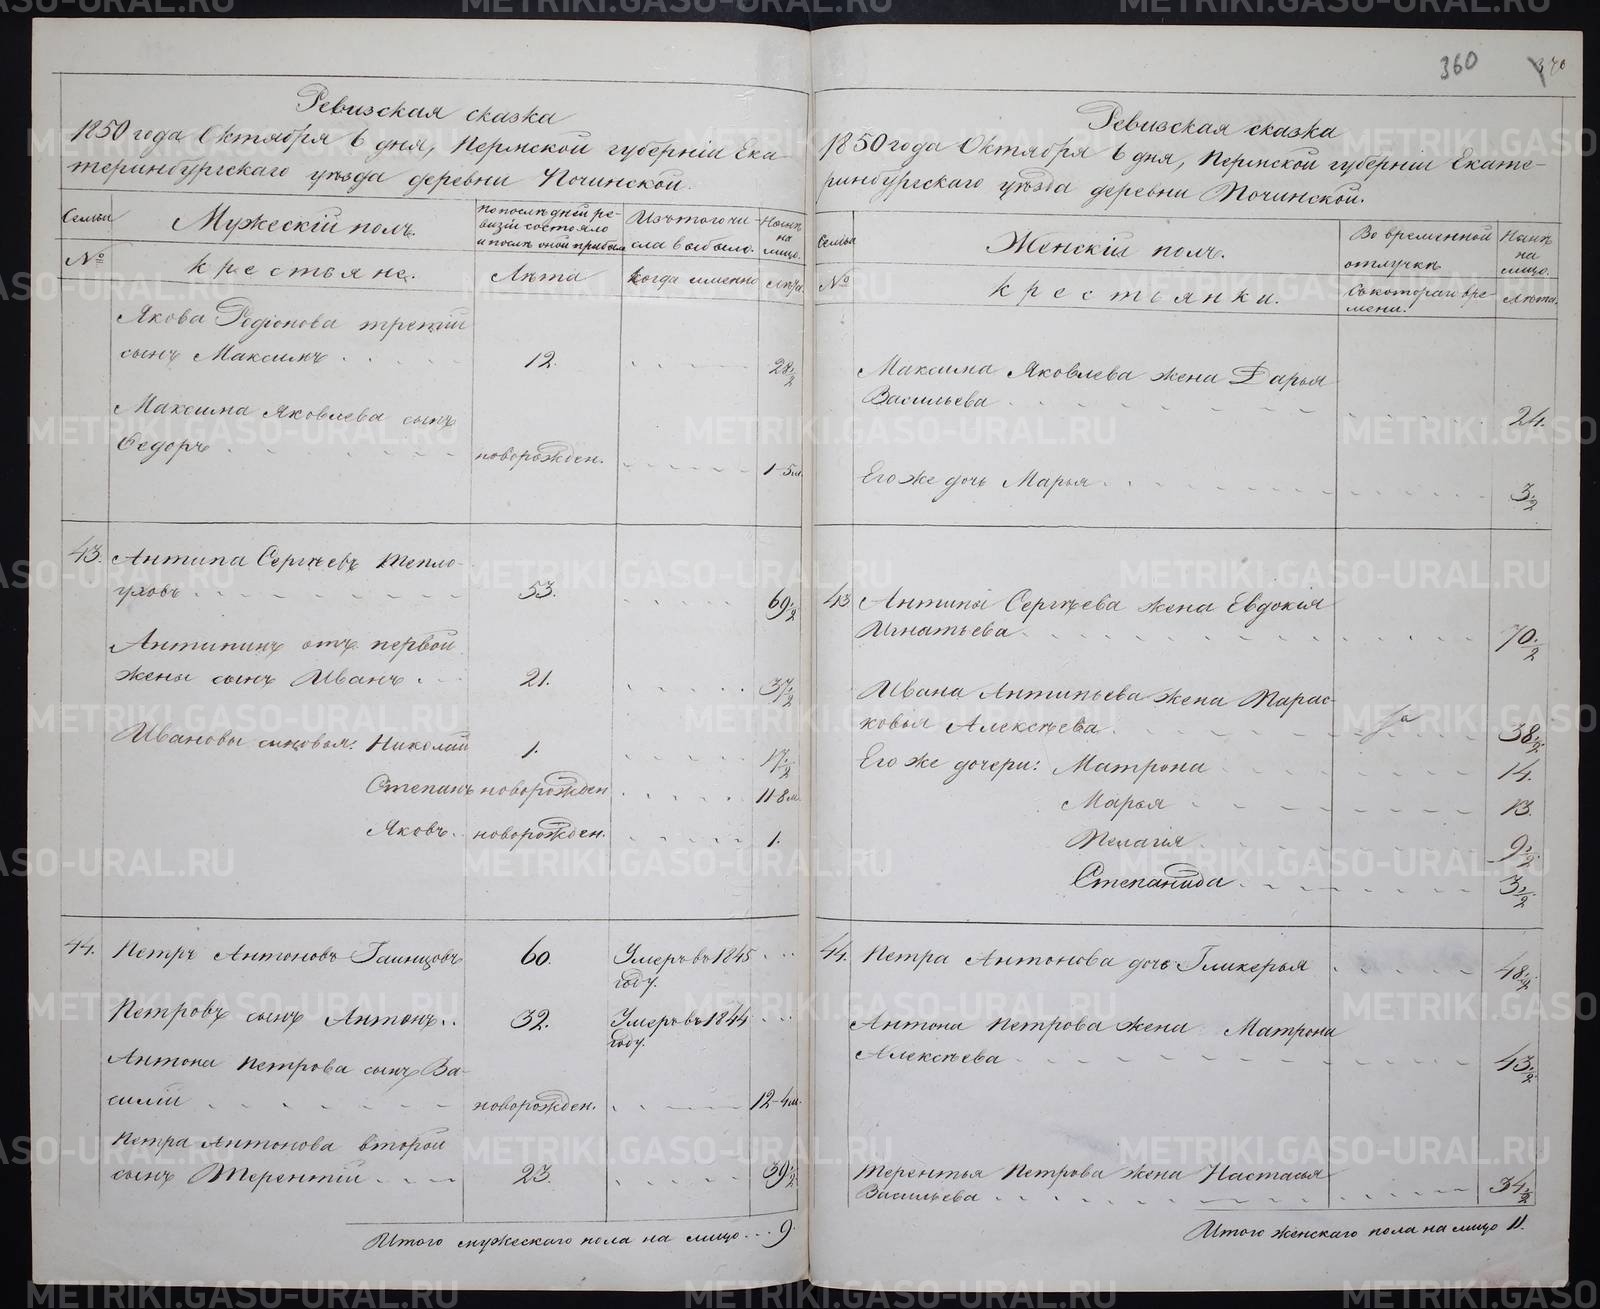 360
Ревизская сказка
1850 года Октября 6 дня, Пермской губерніи Ека-
теринбургскаго уѣзда деревни Починской.
Семьи
Мужескій полъ.
По послѣдней ре-
визіи состояло
и послѣ оной прибыло
Изъ того чи-
сла выбыло.
Нынѣ
на
лицо.
№
крестьяне.
Лѣта
Когда именно
Лѣта
Якова Родіонова третій
сынъ Максимъ 12. 28 1/2
Максима Яковлева сынъ
Федоръ новорожден. 1-5м.
43. Антипа Сергѣевъ Тепло-
уховъ 53. 69 1/2
Антипинъ отъ первой
жены сынъ Иванъ 21. 37 1/2
Ивановы сыновья: Николай 1. 17 1/2
Степанъ новорожден 11-8м.
Яковъ новорожден. 1.
44. Петръ Антоновъ 60. Умеръ въ 1845
году.
Петровъ сынъ Антонъ 32. Умеръ въ 1844
году.
Антона Петрова сынъ Ва-
силій новорожден. 12-4м.
Петра Антонова второй
сынъ Терентій 23. 39 1/2
Итого мужескаго пола на лицо 9.
Ревизская сказка
1850 года Октября 6 дня, Пермской губерніи Екате-
ринбургскаго уѣзда деревни Починской.
Семьи
Женскій полъ.
Во временной
отлучкѣ
Нынѣ
на
лицо.
№
крестьянки.
Съ котораго вре-
мени.
Лѣта.
Максима Яковлева жена Дарья
Васильева 24.
Его же дочь Марья 3 1/2
43 Антипы Сергѣева жена Евдокія
Игнатьева 70 1/2
Ивана Антипьева жена Парас-
ковья Алексѣева 38 1/2
Его же дочери: Матрона 14.
Марья 13.
Пелагія 9 1/2
Степанида 3 1/2
44. Петра Антонова дочь Гликерья 48 1/2
Антона Петрова жена Матрона
Алексѣева 43 1/2
Терентья Петрова жена Настасья
Васильева 34 1/2
Итого женскаго пола на лицо 11.
METRIKI.GASO-URAL.RU